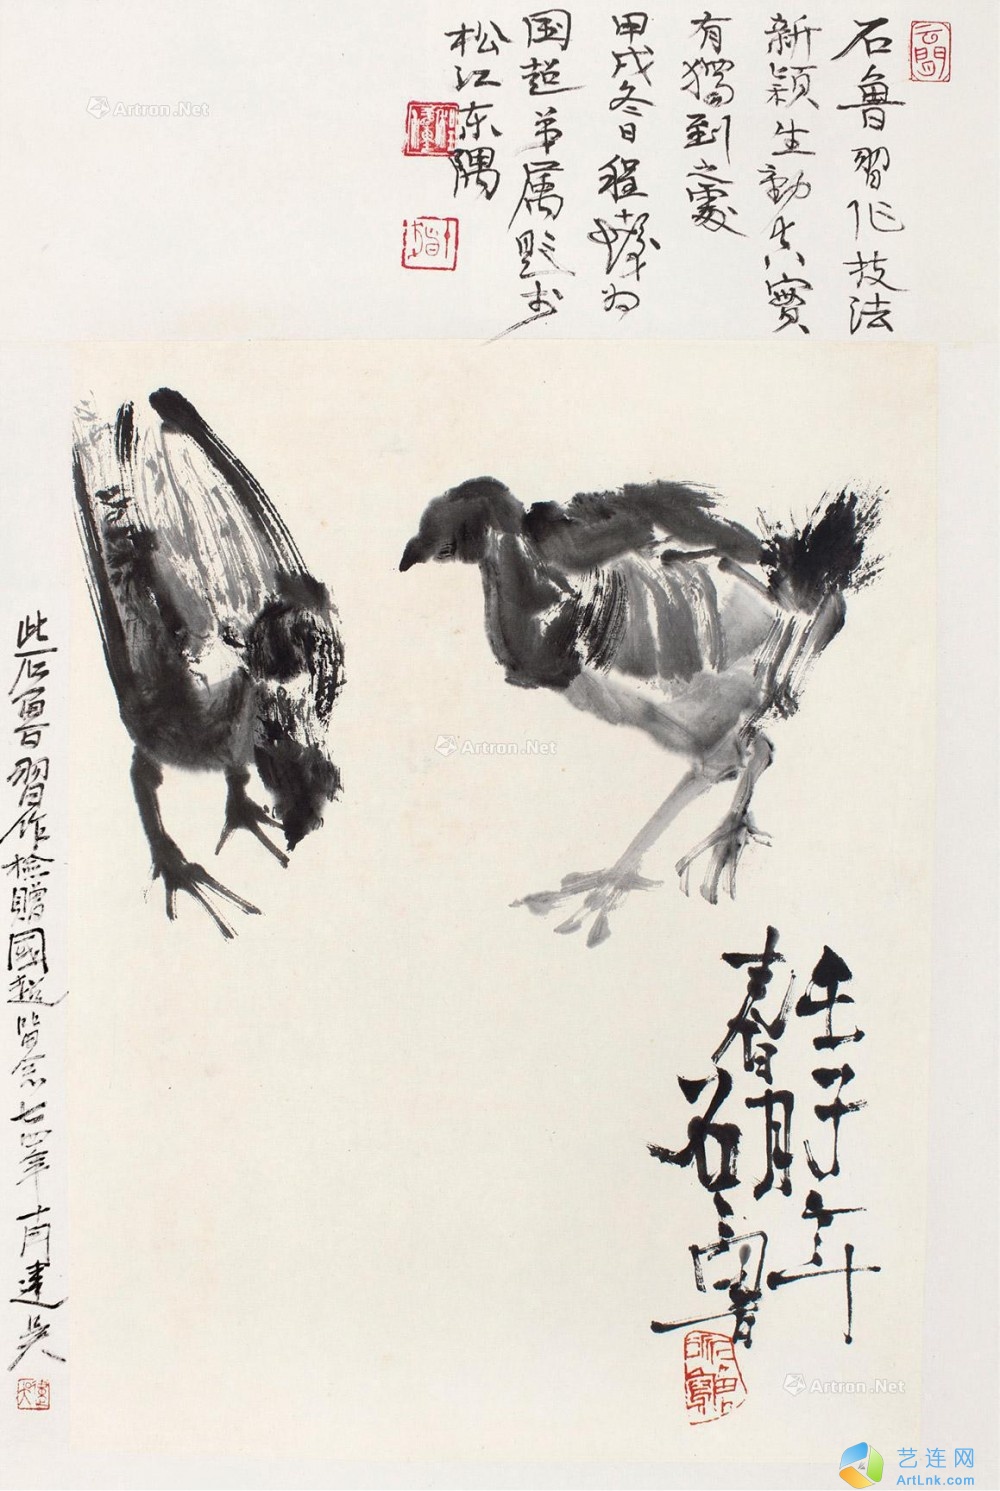 石鲁習作技法
新颖生動真實
有獨到之處
甲戌冬日程十髪为
国超弟属题于
松江东隅
壬子年
春月
石鲁
此石鲁習作檢贈國超留念七四年十月建吴
Artron.Net
Artron.Net
Artron.Net
艺连网
ArtLnk.com